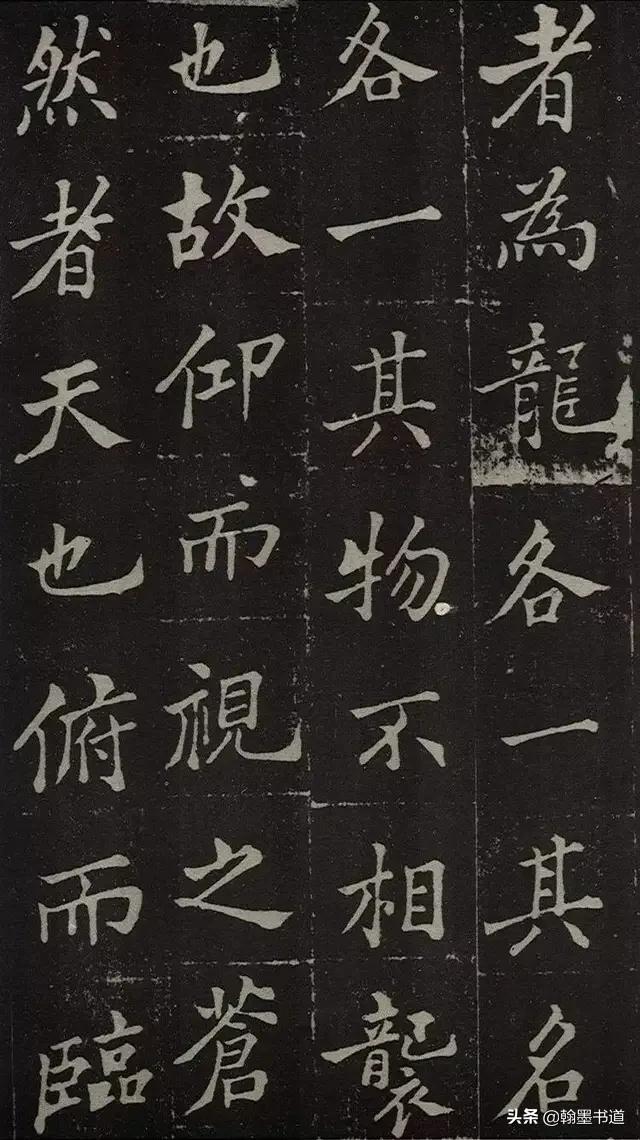 者為龍各一其名
各一其物不相襲
也故仰而視之蒼
然者天也俯而臨
头条 @翰墨书道